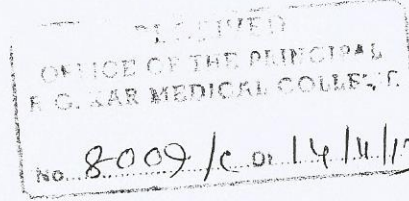 RECEIVED
OFFICE OF THE PRINCIPAL
R. G. KAR MEDICAL COLLEGE.
No. 8009/C Dt 14/11/17